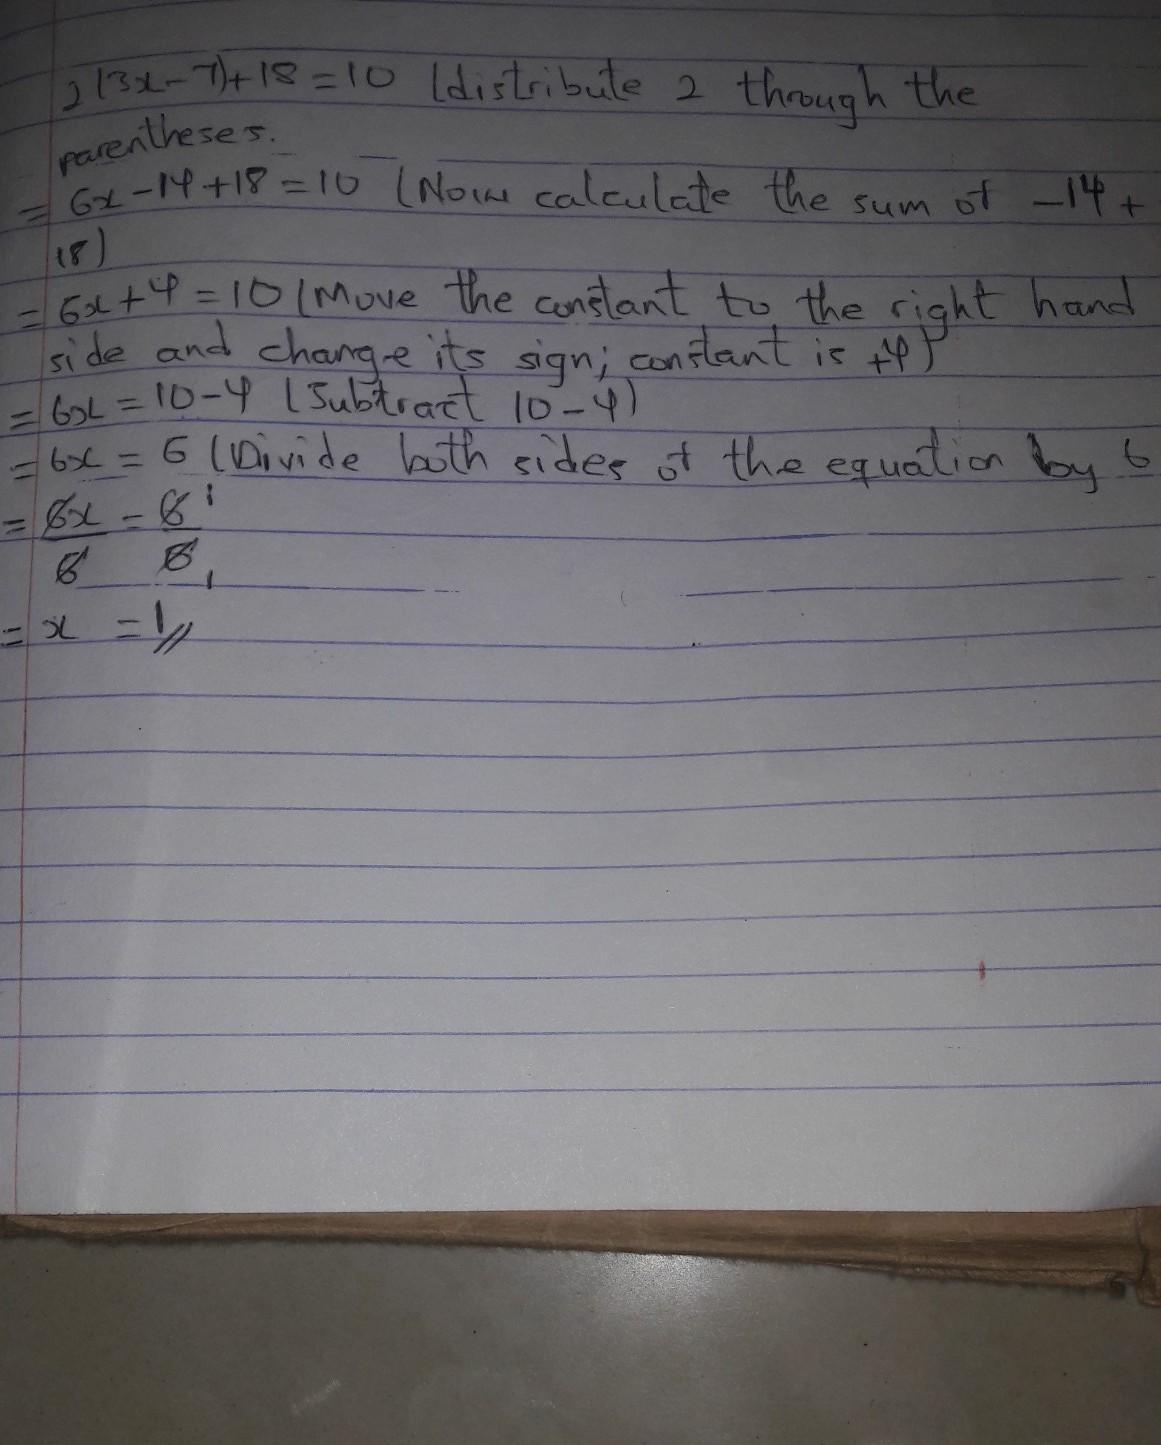 2(3x-7)+18=10 (distribute 2 through the
parentheses.
= 6x-14+18=10 (Now calculate the sum of -14+
18)
= 6x+4=10 (Move the constant to the right hand
side and change its sign; constant is +4)
= 6x=10-4 (Subtract 10-4)
= 6x = 6 (Divide both sides of the equation by 6
= 6x = 6 1
6 6 1
= x = 1//